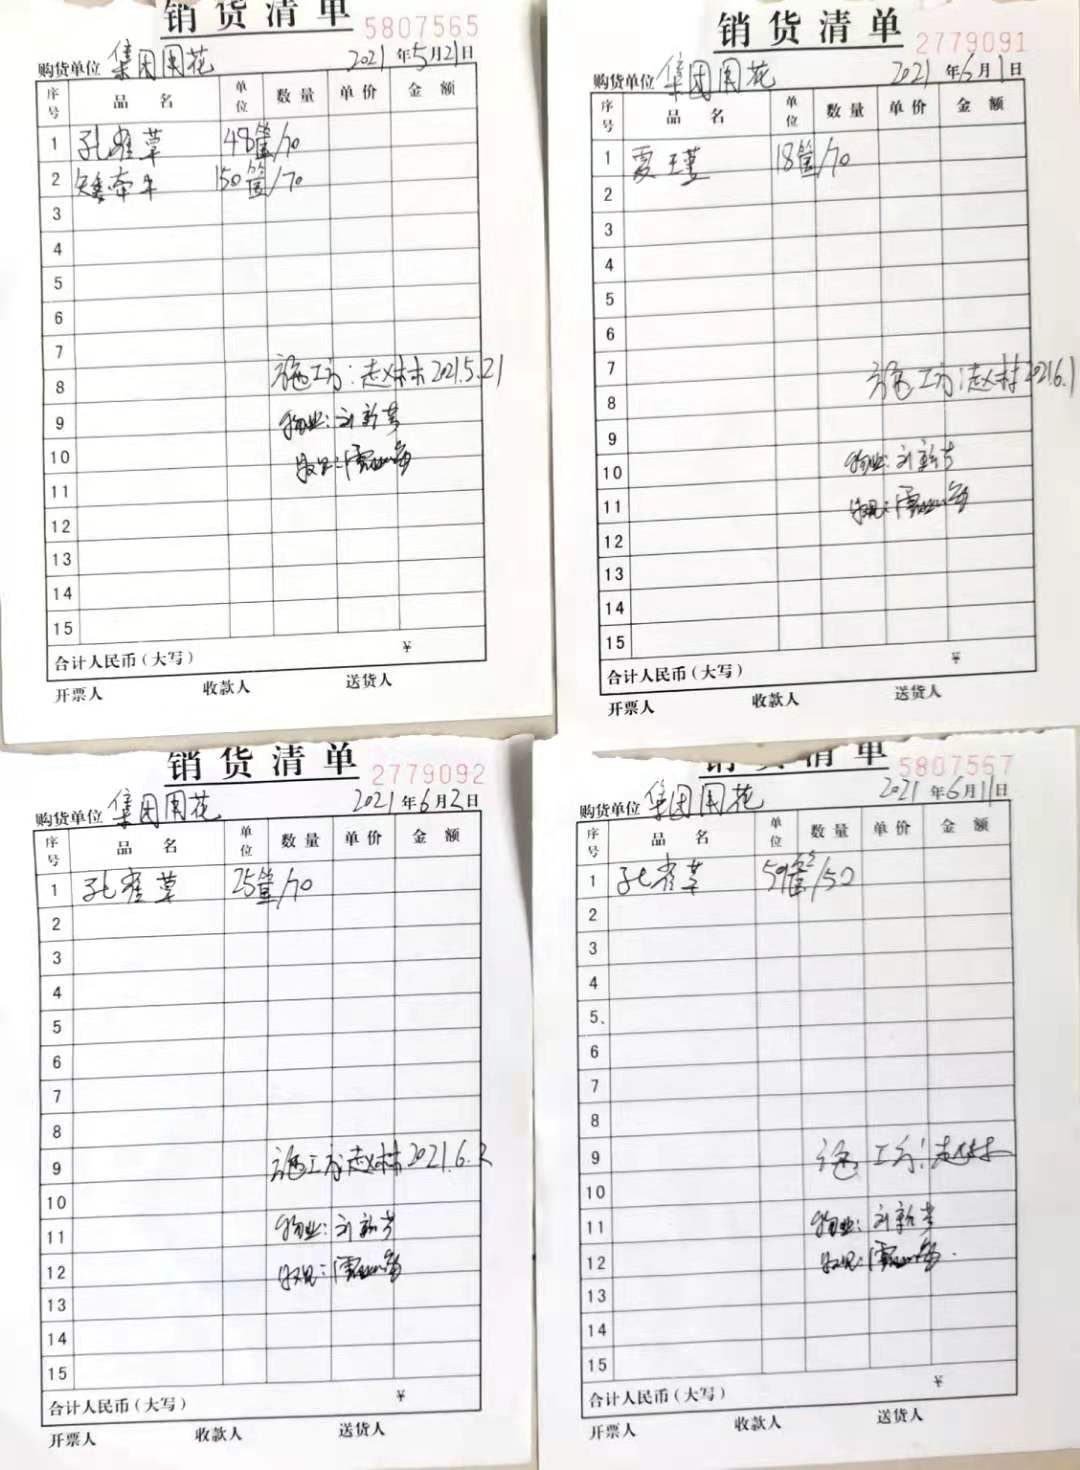 销货清单
5807565
购货单位 集团用花 2021年5月21日
序号 品名 单位 数量 单价 金额
1 孔雀草 48筐/70
2 矮牵牛 150筐/70
3
4
5
6
7
8 施工方：赵林 2021.5.21
9 物业：刘新芳
10
11
12
13
14
15
合计人民币（大写） ¥
开票人 收款人 送货人
销货清单
2779091
购货单位 集团用花 2021年6月1日
序号 品名 单位 数量 单价 金额
1 夏堇 18筐/70
2
3
4
5
6
7 施工方：赵林 2021.6.1
8
9
10 物业：刘新芳
11
12
13
14
15
合计人民币（大写） ¥
开票人 收款人 送货人
销货清单
2779092
购货单位 集团用花 2021年6月2日
序号 品名 单位 数量 单价 金额
1 孔雀草 25筐/70
2
3
4
5
6
7
8
9 施工方赵林 2021.6.2
10
11 物业：刘新芳
12
13
14
15
合计人民币（大写） ¥
开票人 收款人 送货人
销货清单
5807567
购货单位 集团用花 2021年6月11日
序号 品名 单位 数量 单价 金额
1 孔雀草 59筐/50
2
3
4
5
6
7
8
9 施工方：赵林
10
11 物业：刘新芳
12
13
14
15
合计人民币（大写） ¥
开票人 收款人 送货人